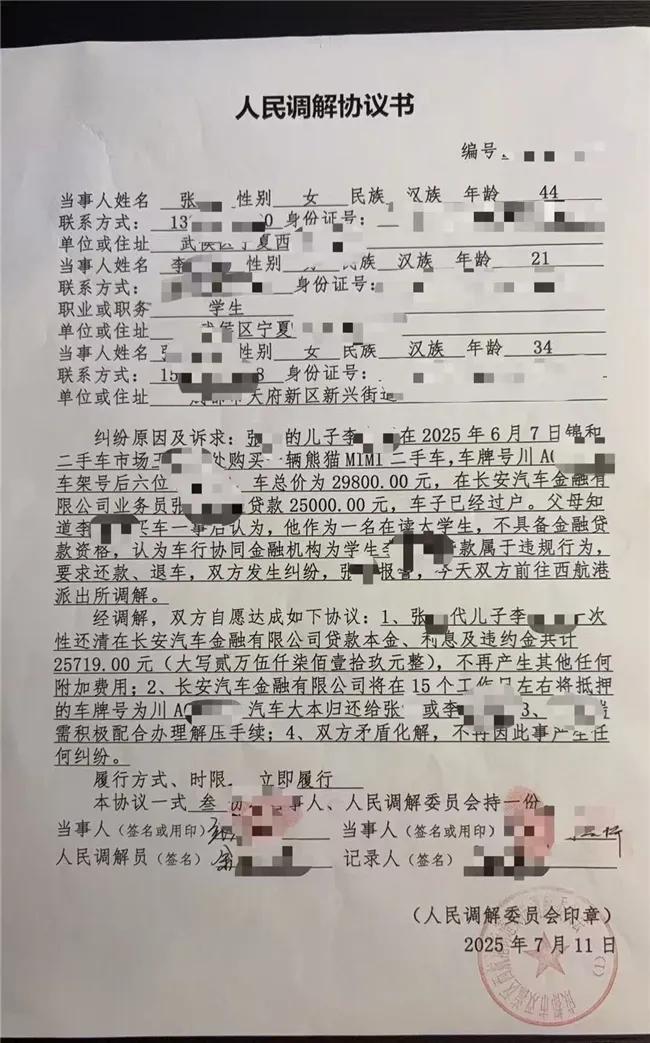 人民调解协议书
编号
当事人姓名 张 性别 女 民族 汉族 年龄 44
联系方式: 13 0 身份证号:
单位或住址 武侯区宁夏西
当事人姓名 李 性别 民族 汉族 年龄 21
联系方式: 身份证号:
职业或职务 学生
单位或住址 武侯区宁夏
当事人姓名 张 性别 女 民族 汉族 年龄 34
联系方式: 15 8 身份证号:
单位或住址 成都市天府新区新兴街道
纠纷原因及诉求: 张 的儿子李 在 2025 年 6 月 7 日锦和
二手车市场 处购买一辆熊猫 MIMI 二手车,车牌号川 A
车架号后六位 车总价为 29800.00 元, 在长安汽车金融有
限公司业务员张 贷款 25000.00 元, 车子已经过户。父母知
道李 买车一事后认为, 他作为一名在读大学生, 不具备金融贷
款资格, 认为车行协同金融机构为学生李 款属于违规行为,
要求还款、退车, 双方发生纠纷, 张 报警, 今天双方前往西航港
派出所调解。
经调解, 双方自愿达成如下协议: 1、张 代儿子李 一次
性还清在长安汽车金融有限公司贷款本金、利息及违约金共计
25719.00 元 (大写贰万伍仟柒佰壹拾玖元整), 不再产生其他任何
附加费用; 2、长安汽车金融有限公司将在 15 个工作日左右将抵押
的车牌号为川 A 汽车大本归还给张 或李 3、
需积极配合办理解压手续; 4、双方矛盾化解, 不再因此事产生任
何纠纷。
履行方式、时限 立即履行
本协议一式 叁 份 当事人、人民调解委员会持一份
当事人 (签名或用印) 当事人 (签名或用印)
人民调解员 (签名) 记录人 (签名)
(人民调解委员会印章)
2025 年 7 月 11 日